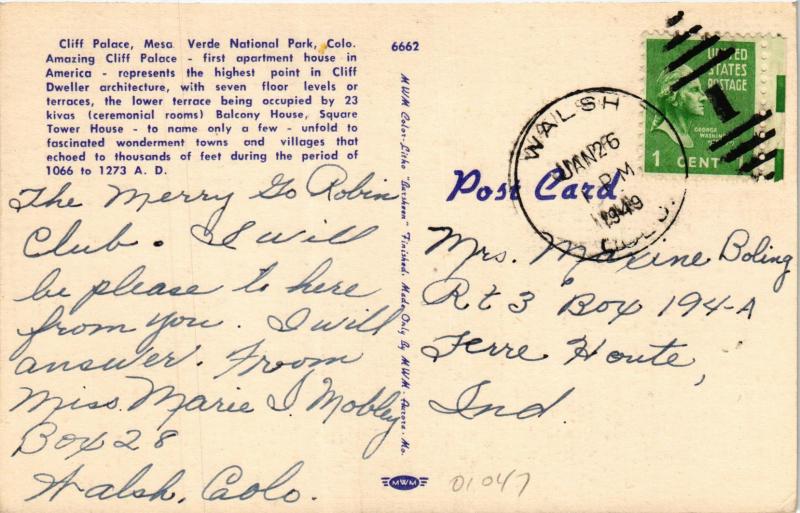 Cliff Palace, Mesa Verde National Park, Colo.
Amazing Cliff Palace - first apartment house in
America - represents the highest point in Cliff
Dweller architecture, with seven floor levels or
terraces, the lower terrace being occupied by 23
kivas (ceremonial rooms) Balcony House, Square
Tower House - to name only a few - unfold to
fascinated wonderment towns and villages that
echoed to thousands of feet during the period of
1066 to 1273 A. D.
6662
The Merry Go Robin
Club. I will
be please to here
from you. I will
answer. From
Miss. Marie I. Mobley
Box 28
Walsh, Colo.
MWM Color-Litho "Barsheen" Finished. Made Only By MWM - Aurora, Mo.
MWM
01047
Post Card
WALSH
JAN 26
P.M.
1949
COLO.
UNITED
STATES
POSTAGE
1
GEORGE
WASHINGTON
1 CENT
Mrs. Maxine Boling
Rt 3 Box 194-A
Terre Houte,
Ind